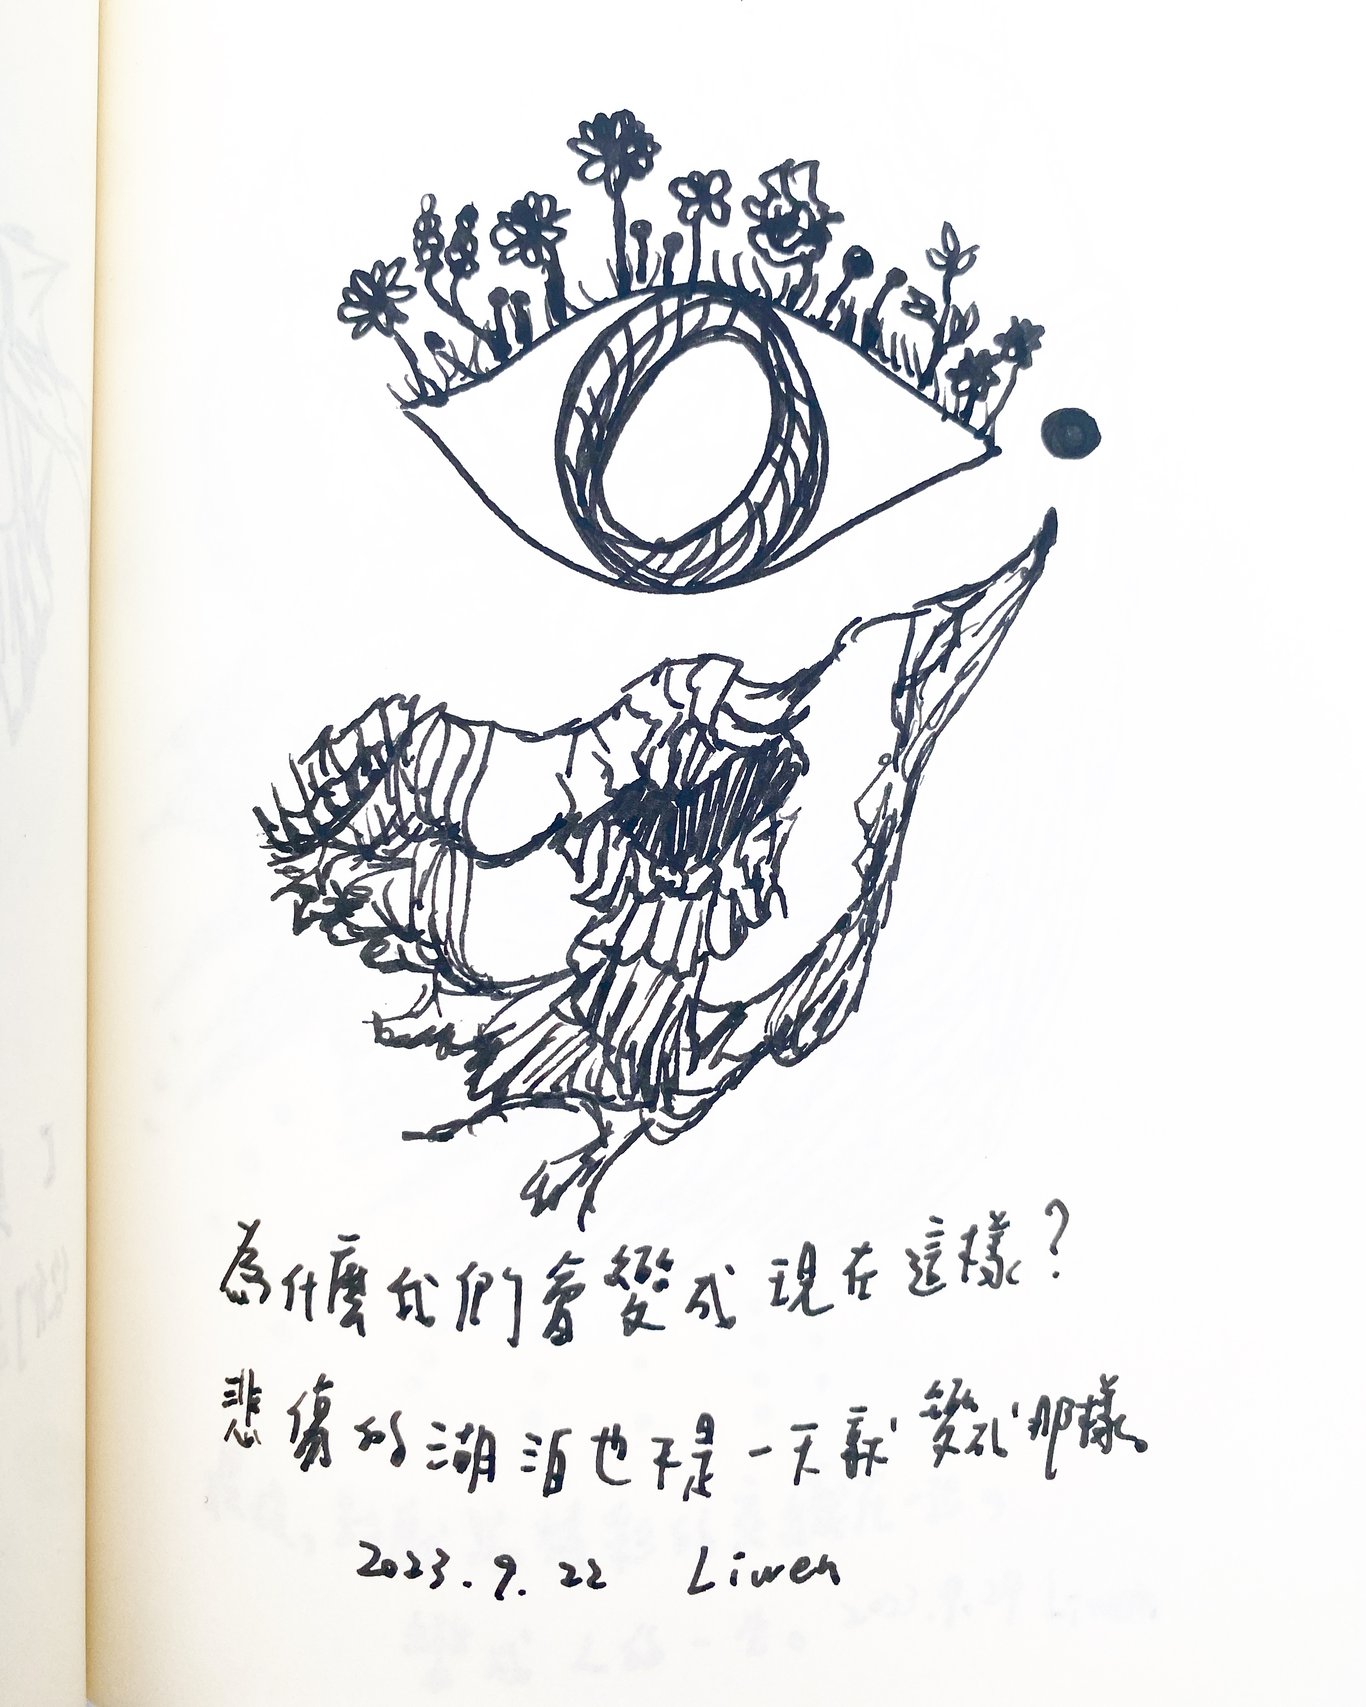 為什麼我們會變成現在這樣?
悲傷的湖泊也不是一天就變成那樣。
2023.9.22 Liwen